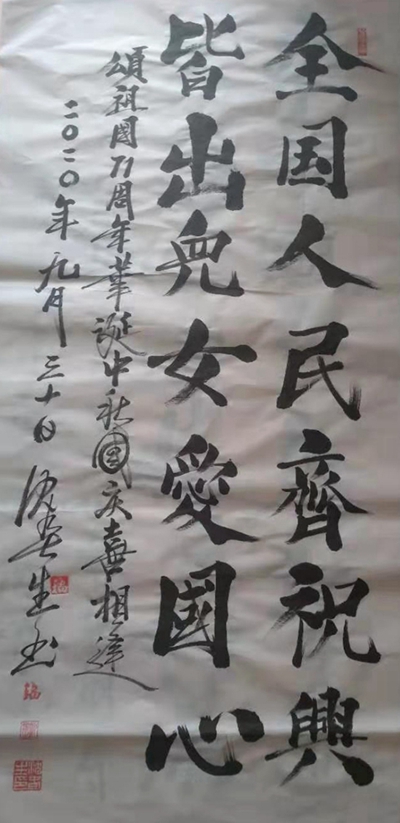 全国人民齊祝興
皆出兒女愛國心
頌祖國71周年華誕中秋國庆喜相逢
二〇二〇年九月三十日
生书